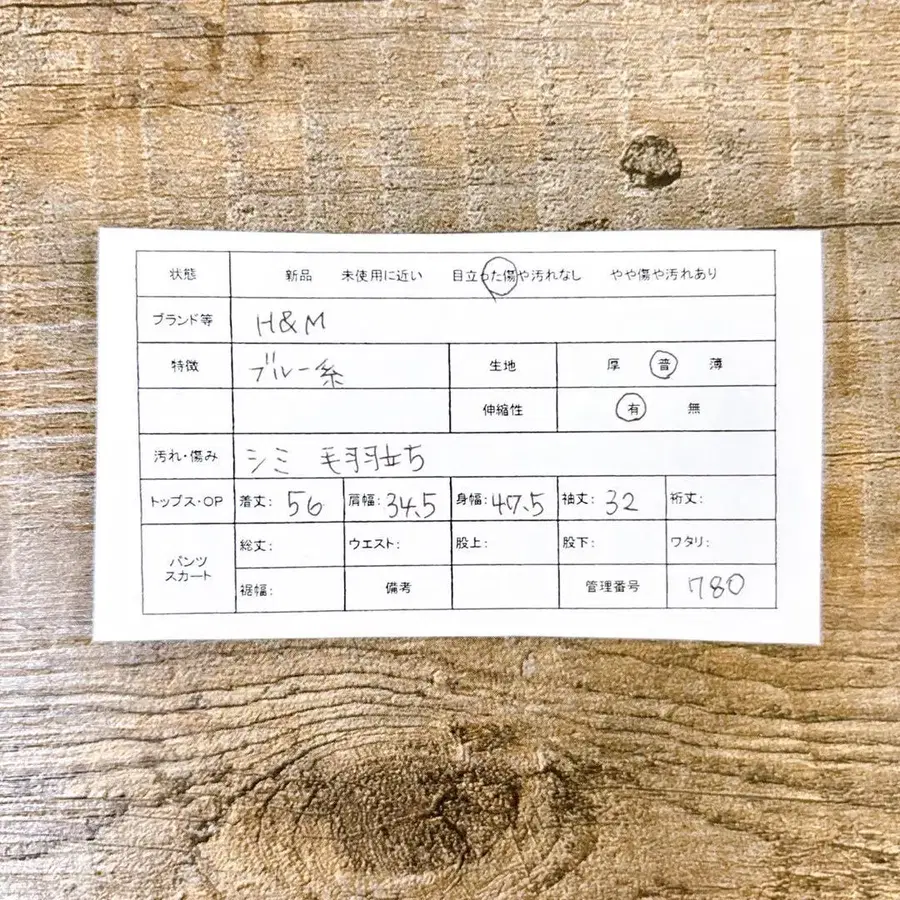 状態 新品 未使用に近い 目立った傷や汚れなし やや傷や汚れあり
ブランド等 H&M
特徴 ブルー系 生地 厚 普 薄
伸縮性 有 無
汚れ・傷み シミ 毛羽立ち
トップス・OP 着丈: 56 肩幅: 34.5 身幅: 47.5 袖丈: 32 裄丈:
パンツ スカート 総丈: ウエスト: 股上: 股下: ワタリ:
裾幅: 備考 管理番号 780